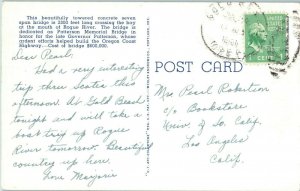 This beautifully towered concrete seven
span bridge is 3000 feet long crossing the bay
at the mouth of Rogue River. The bridge is
dedicated as Patterson Memorial Bridge in
honor for the late Governor Patterson, whose
ardent efforts helped build the Oregon Coast
Highway. Cost of bridge $800,000.
Dear Pearl,
Had a very interesting
trip thru Scotia this
afternoon. At Gold Beach
tonight and will take a
boat trip up Rogue
River tomorrow. Beautiful
country up here.
Love Marjorie
POST CARD
1 CENT
Mrs Pearl Robertson
c/o Bookstore
Univ of So. Calif.
Los Angeles
Calif.